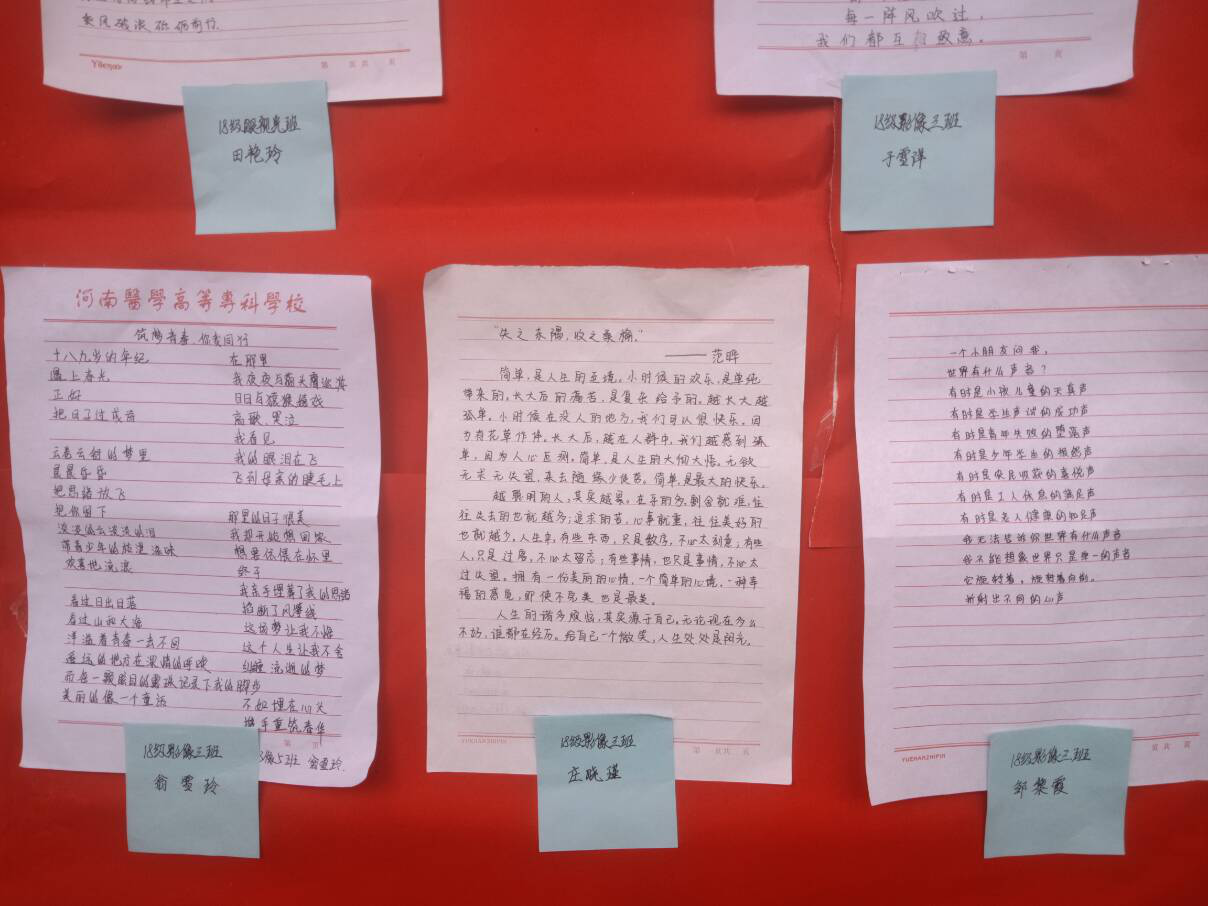 乘风破浪砥砺前行.
Yuehan
第 页共 页
每一阵风吹过，
我们都互相致意。
第 页
18级眼视光班
田艳玲
18级影像三班
于雪萍
河南醫學高等專科學校
筑梦青春，你我同行
十八九岁的年纪
遇上春光
正好
把日子过成诗
云卷云舒的梦里
晨晨昏昏
把思绪放飞
把你留下
淡淡的云淡淡的泪
带着少年的浪漫滋味
欢喜地流浪
看过日出日落
看过山和大海
洋溢着青春一去不回
遥远的地方在深情的呼唤
而每一颗醒目的露珠记录下我的脚步
美丽的像一个童话
在那里
我夜夜与猫头鹰
日日与猿猴嬉戏
高歌、哭泣
我看见
我的眼泪在飞
飞到母亲的睫毛上
那里的日子很美
我却开始想回家
想要依偎在怀里
终于
我亲手埋葬了我的思绪
掐断了风筝线
这场梦让我不悔
这个人生让我不舍
纠缠流逝的梦
不如埋在心头
携手重筑春华
第 页
影像5班 翁雪玲.
18级影像三班
翁雪玲
“失之东隅，收之桑榆。”
——范晔
简单，是人生的至境。小时候的欢乐，是单纯
带来的，长大后的痛苦，是复杂给予的。越长大越
孤单。小时候在没人的地方，我们可以很快乐，因
为有花草作伴。长大后，越在人群中，我们越感到孤
单，因为人心叵测。简单，是人生的大彻大悟。无欲
无求无失望，来去随缘少疲苦。简单，是最大的快乐。
越聪明的人，其实越累。在乎的多，割舍就难，往
往失去的也就越多；追求的苦，心事就重，往往美好的
也就越少。人生中，有些东西，只是数字，不必太刻意；有些
人，只是过客，不必太留恋；有些事情，也只是事情，不必太
过失望。拥有一份美丽的心情，一个简单的心境，一种幸
福的感觉，即使不完美也是最美。
人生的诸多烦恼，其实源于自己。无论现在多么
不好，谁都在经历。给自己一个微笑，人生处处是阳光。
YUEHANZHIPIN
第 页共 页
18级影像三班
庄晓瑾
一个小朋友问我，
世界有什么声音？
有时是小孩儿童的天真声
有时是学生声调的成功声
有时是青年失败的堕落声
有时是少年学生的朗然声
有时是农民收获的喜悦声
有时是工人休息的满足声
有时是老人健康的知足声
我无法告诉你世界有什么声音
我不能想象世界只是单一的声音
它旋转着，旋转着向前。
折射出不同的心声
YUEHANZHIPIN
第 页共 页
18级影像三班
邹黎霞